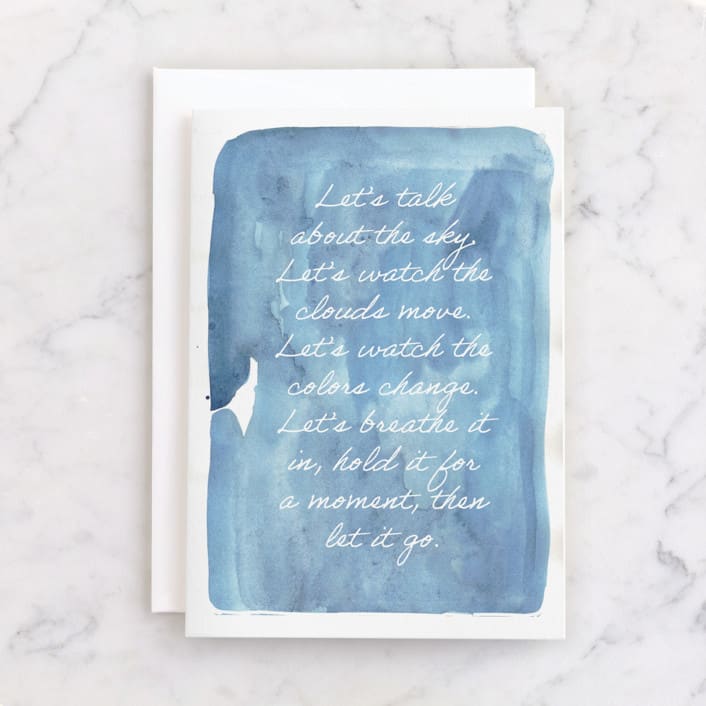 Let's talk
about the sky.
Let's watch the
clouds move.
Let's watch the
colors change.
Let's breathe it
in, hold it for
a moment, then
let it go.